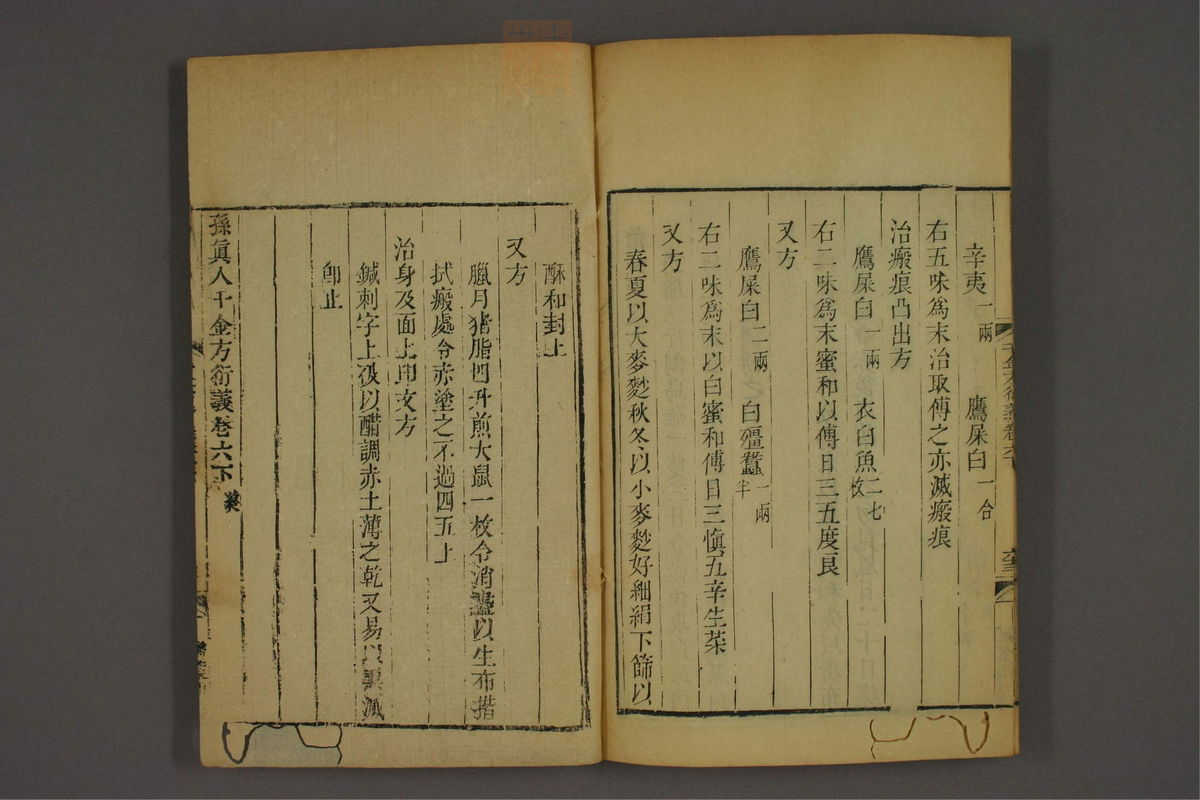 辛夷一兩 鷹屎白一合
右五味為末治取傅之亦滅瘢痕
治瘢痕凸出方
鷹屎白一兩 衣白魚二七枚
右二味為末蜜和以傅日三五度良
又方
鷹屎白二兩 白殭蠶一兩半
右二味為末以白蜜和傅日三慎五辛生菜
又方
春夏以大麥麨秋冬以小麥麨好細絹下篩以
酥和封上
又方
臘月猪脂四升煎大鼠一枚令消盡以生布揩
拭瘢處令赤塗之不過四五上
治身及面上印文方
鍼刺字上破以醋調赤土薄之乾又易以黑滅
卽止
孫眞人千金方衍義卷六下終